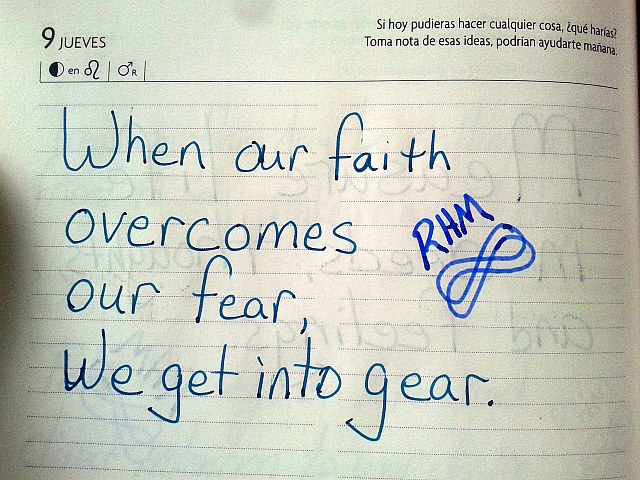 9 JUEVES
Si hoy pudieras hacer cualquier cosa, ¿qué harías?
Toma nota de esas ideas, podrían ayudarte mañana.
en
R
When our faith
overcomes
RHM
our fear,
We get into gear.